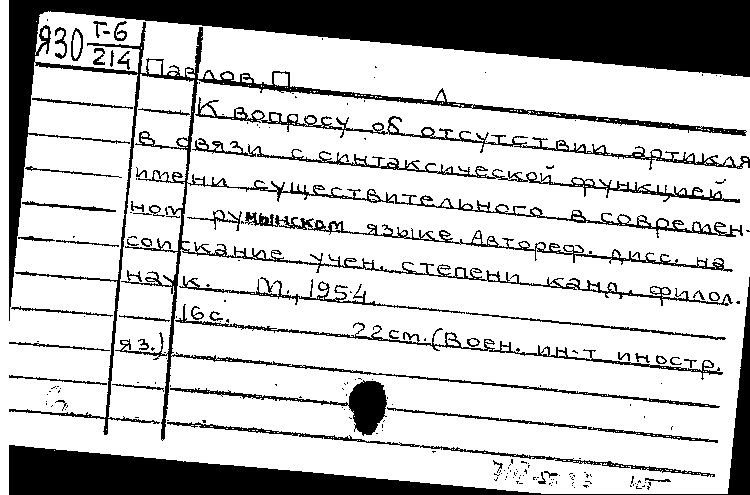 Я30 Т-6
214
Павлов, П
К вопросу об отсутствии артикля
в связи с синтаксической функцией
имени существительного в современ-
ном румынском языке. Автореф. дисс. на
соискание учен. степени канд. филол.
наук. М., 1954.
16 с. 22 см. (Воен. ин-т иностр.
яз.)